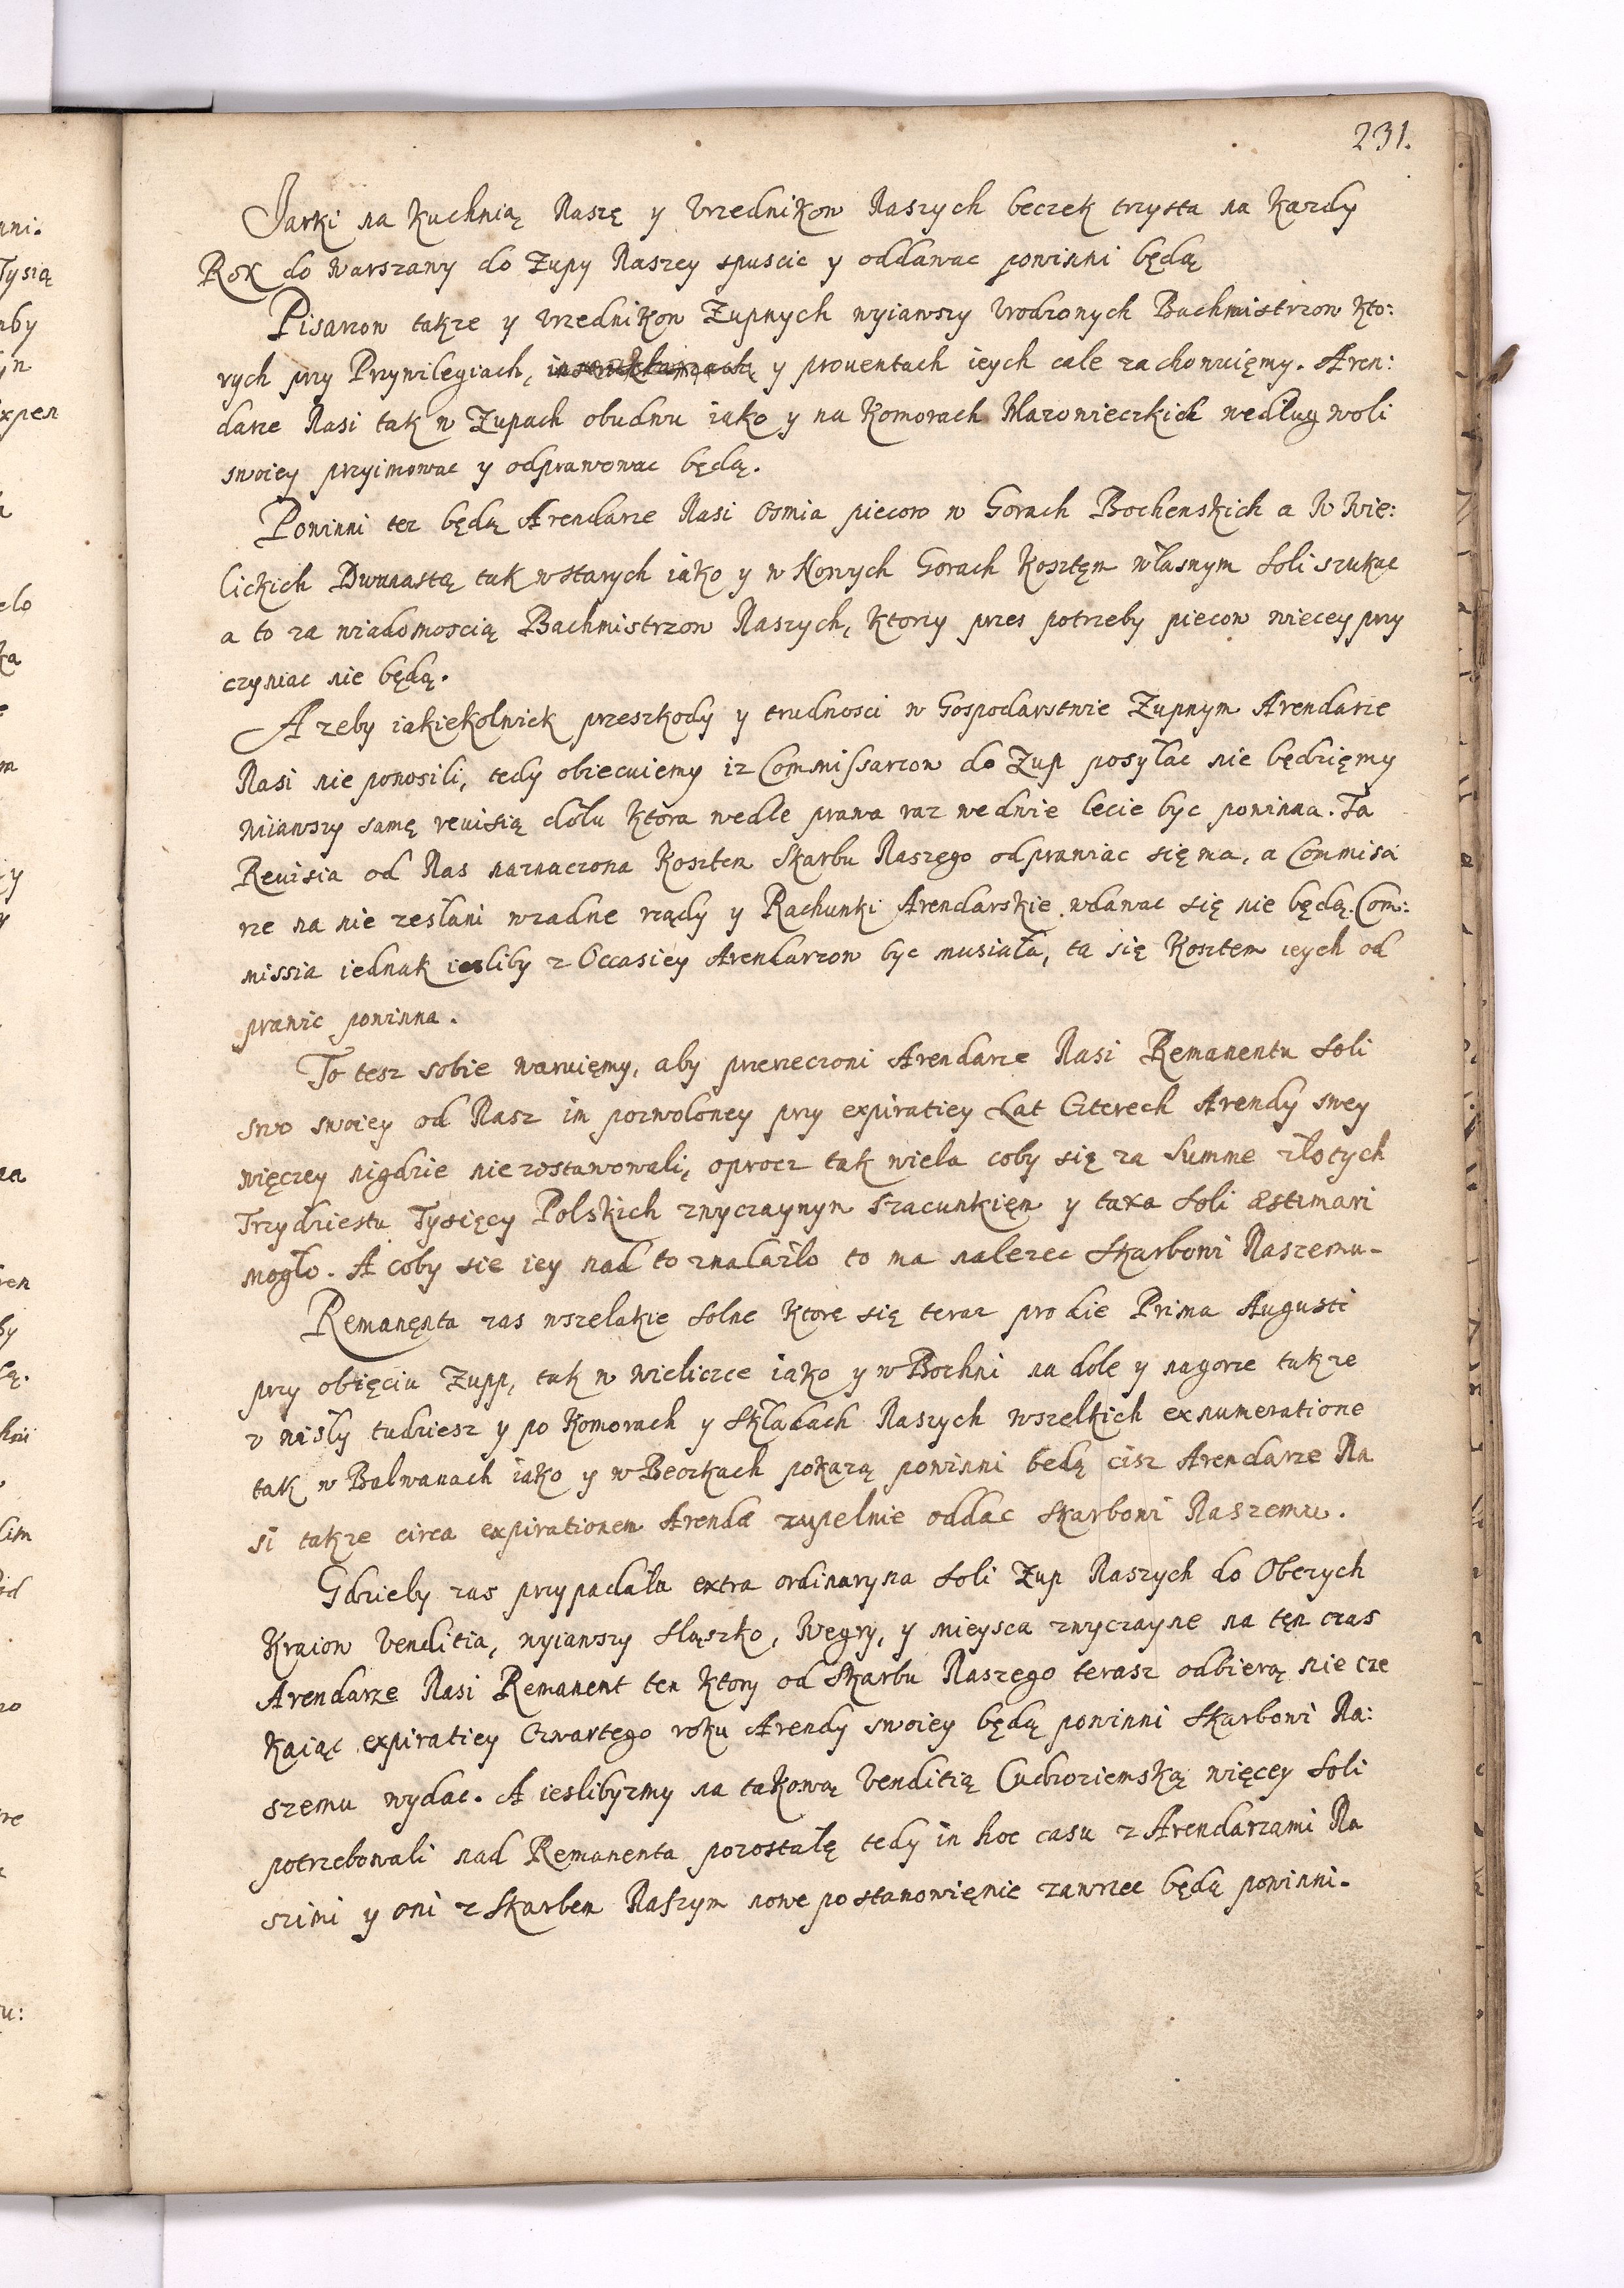 231.
Jarki na Kuchnią Naszę y Vrzednikow Naszych beczek trzysta na Kazdy
Rok do Warszawy do Zupy Naszey spuscic y oddawac powinni będą
Pisarzow takze y Vrzednikow Zupnych wyiawszy Vrodzonych Bachmistrzow kto:
rych przy Przywilegiach, y prouentach ieych cale zachowuięmy. Aren:
darze Nasi tak w Zupach obudwu iako y na Komorach Mazowieczkich według woli
swoiey przyimowac y odprawowac będą.
Powinni tez będą Arendarze Nasi Osmia piecow w Gorach Bochenskich a W Wie:
lickich Dwunastą tak w starych iako y w Nowych Gorach Kosztęm własnym soli szukac
a to za wiadomoscią Bachmistrzow Naszych, Ktorzy przes potrzeby piecow wiecey przy
czyniac nie będą.
A zeby iakiekolwiek przeszkody y trudnosci w Gospodarstwie Zupnym Arendarze
Nasi nie ponosili, tedy obiecuiemy iz Commissarzow do Zup posyłac nie będzięmy
wiawszy samę reuisią dołu Ktora wedle prawa raz we dwie lecie byc powinna. Ta
Reuisia od Nas naznaczona Kosztem Skarbu Naszego odprawiac się ma, a Commisa
rze na nie zesłani wzadne rządy y Rachunki Arendarskie wdawac się nie będą. Com:
missia iednak iesliby z Occasiey Arendarzow byc musiała, ta się Kosztem ieych od
prawic powinna.
To tesz sobie waruięmy, aby przerzeczoni Arendarze Nasi Remanentu soli
swo swoiey od Nasz im pozwoloney przy expiratiey Lat Czterech Arendy swey
więczey nigdzie nie zostawowali, oprocz tak wiela coby się za Summe złotych
Trzydziestu Tysięcy Polskich zwyczaynym szacunkięm y taxa soli æstimari
mogło. A coby sie iey nad to znalazło to ma nalezec Skarbowi Naszemu.
Remanęnta zas wszelakie solne Ktore się teraz pro die Prima Augusti
przy obięciu Zupp, tak w Wieliczce iako y w Bochni na dole y nagorze takze
v Wisły tudziesz y po Komorach y Składach Naszych wszelkich exnumeratione
tak w Bałwanach iako y w Beczkach pokazą powinni bedą cisz Arendarze Na
si takze circa expirationem Arendæ zupełnie oddac Skarbowi Naszemu.
Gdzieby zas przypadała extra ordinaryna soli Zup Naszych do Obczych
Kraiow Venditia, wyiawszy Sląszko, Wegry, y mieysca zwyczayne na tęn czas
Arendarze Nasi Remanent ten Ktory od Skarbu Naszego terasz odbierą nie cze
Kaiąc expiratiey Czwartego roku Arendy swoiey będą powinni Skarbowi Na:
szemu wydac. A ieslibyzmy na takową Venditią Cudzoziemską więcey soli
potrzebowali nad Remanenta pozostałę tedy in hoc casu z Arendarzami Na
szimi y oni z Skarbem Naszym nowe postanowięnie zawrzec będą powinni.